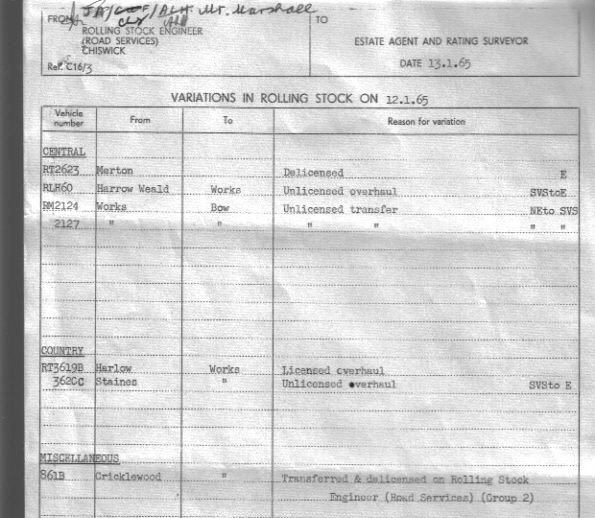 Mr. Marshall
FROM TO
ROLLING STOCK ENGINEER
(ROAD SERVICES) ESTATE AGENT AND RATING SURVEYOR
CHISWICK
Ref. C16/3 DATE 13.1.65
VARIATIONS IN ROLLING STOCK ON 12.1.65
Vehicle number From To Reason for variation
CENTRAL
RT2623 Merton Delicensed E
RLH60 Harrow Weald Works Unlicensed overhaul SVStoE
RM2124 Works Bow Unlicensed transfer NEto SVS
2127 " " " " " "
COUNTRY
RT3619B Harlow Works Licensed overhaul
362CC Staines " Unlicensed overhaul SVSto E
MISCELLANEOUS
861B Cricklewood " Transferred & delicensed on Rolling Stock
Engineer (Road Services) (Group 2)